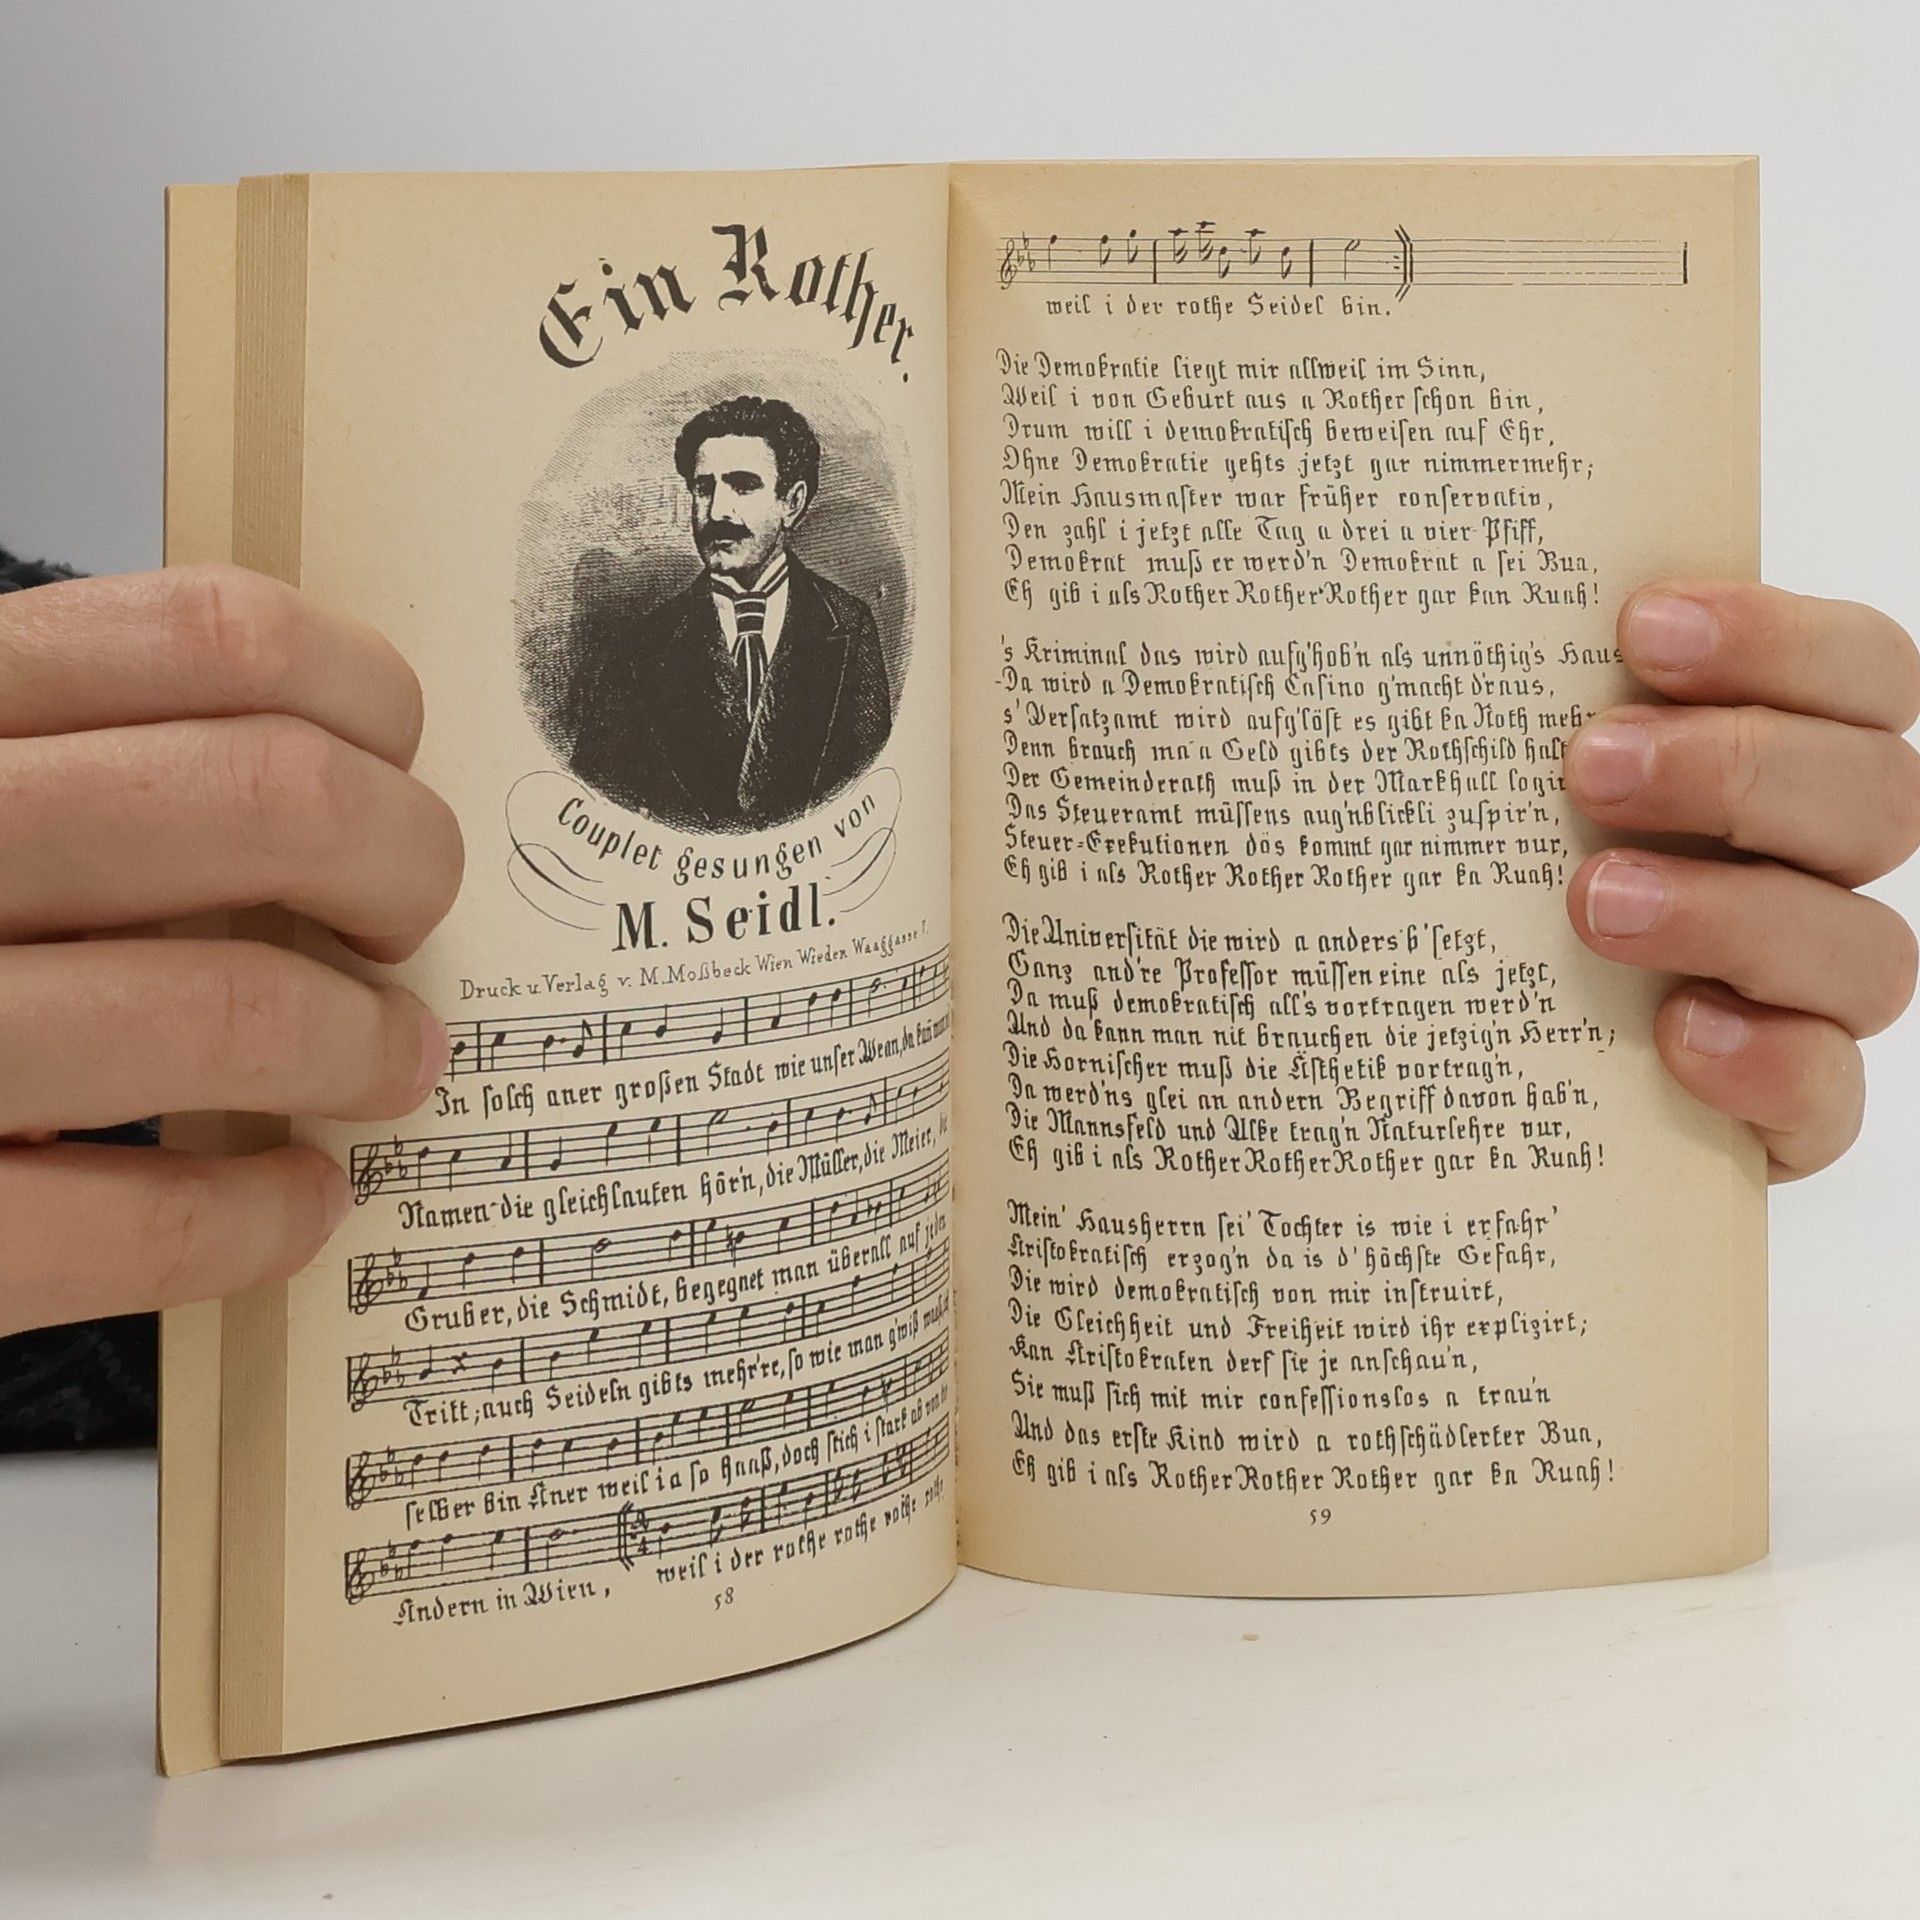 Ein Rother.
Couplet gesungen von
M. Seidl.
Druck u. Verlag v. M. Moßbeck Wien Wieden Waaggasse 7.
In solch aner großen Stadt wie unser Wean, da kañ man
Namen die gleichlauten hör'n, die Müller, die Meier,
Gruber, die Schmidt, begegnet man überall auf jeden
Tritt; auch Seideln gibts mehr're, so wie man g'wiß
selber bin Aner weil i a so haaß, doch stich i stark ab von
Andern in Wien, weil i der rothe rothe rothe rothe
58
weil i der rothe Seidel bin.
Die Demokratie liegt mir allweil im Sinn,
Weil i von Geburt aus a Rother schon bin,
Drum will i demokratisch beweisen auf Ehr,
Ohne Demokratie gehts jetzt gar nimmermehr;
Mein Hausmaster war früher conservativ,
Den zahl i jetzt alle Tag a drei a vier Pfiff,
Demokrat muß er werd'n Demokrat a sei Bua,
Eh gib i als Rother Rother Rother gar kan Ruah!
's Kriminal das wird aufg'hob'n als unnöthig's Haus
Da wird a Demokratisch Casino g'macht d'raus,
s' Versatzamt wird aufg'löst es gibt ka Noth mehr
Denn brauch ma a Geld gibts der Rothschild halt
Der Gemeinderath muß in der Markhall
Das Steueramt müssens aug'nblickli zuspir'n,
Steuer-Exekutionen dös kommt gar nimmer vur,
Eh gib i als Rother Rother Rother gar ka Ruah!
Die Universität die wird a anders b'setzt,
Ganz and're Professor müssen eine als jetzt,
Da muß demokratisch all's vortragen werd'n
Und da kann man nit brauchen die jetzig'n Herr'n;
Die Hornischer muß die Ästhetik vortrag'n,
Da werd'ns glei an andern Begriff davon hab'n,
Die Mannsfeld und Ulke trag'n Naturlehre vur,
Eh gib i als Rother Rother Rother gar ka Ruah!
Mein' Hausherrn sei' Tochter is wie i erfahr'
Aristokratisch erzog'n da is d' höchste Gefahr,
Die wird demokratisch von mir instruirt,
Die Gleichheit und Freiheit wird ihr explizirt;
Kan Aristokraten derf sie je anschau'n,
Sie muß sich mit mir confessionslos a trau'n
Und das erste Kind wird a rothschädlerter Bua,
Eh gib i als Rother Rother Rother gar ka Ruah!
59